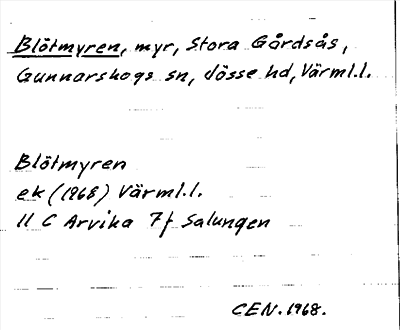 Blötmyren, myr, Stora Gårdsås,
Gunnarskogs sn, Jösse hd, Värml.l.
Blötmyren
ek (1968) Värml.l.
11 C Arvika 7f Salungen
CEN. 1968.